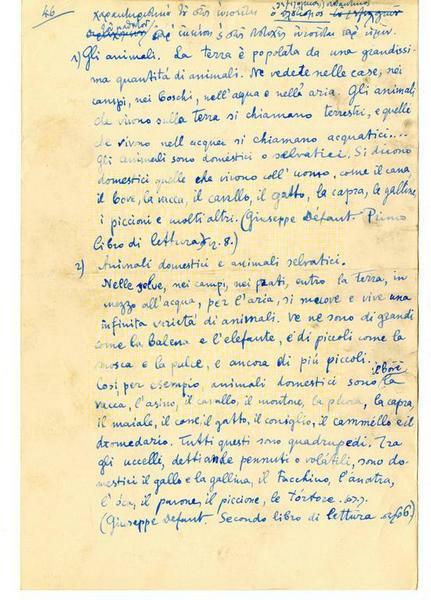 46
1) Gli animali. La terra è popolata da una grandissi-
ma quantità di animali. Ne vedete nelle case, nei
campi, nei boschi, nell'acqua e nella aria. Gli animali
che vivono sulla terra si chiamano terrestri, e quelle
che vivono nell acqua si chiamano acquatici....
Gli animali sono domestici o selvatici. Si dicono
domestici quelle che vivono coll' uomo, come il cane
il bove, la vacca, il cavallo, il gatto, la capra, le galline
i piccioni e molti altri. (Giuseppe Défant. Primo
libro di lettura 8.)
2) Animali domestici e animali selvatici.
Nelle selve, nei campi, nei prati, entro la terra, in
mezzo all'acqua, per l'aria, si muove e vive una
infinita varietà di animali. Ve ne sono di grandi
come la balena e l'elefante, e di piccoli come la
mosca e la pulce, e ancora di più piccoli...
Così, per esempio, animali domestici sono il bove la
vacca, l'asino, il cavallo, il montone, la pecora, la capra,
il maiale, il cane, il gatto, il coniglio, il cammello e il
dromedario. Tutti questi sono quadrupedi. Tra
gli uccelli, detti anche pennuti o volatili, sono do-
mestici il gallo e la gallina, il Tacchino, l'anatra,
l'oca, il pavone, il piccione, le Tortore.
(Giuseppe Defant. Secondo libro di lettura 66)